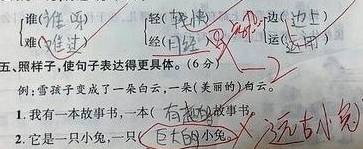 谁(谁的) 轻(轻快) 边(边上)
难(难过) 经(已经) 运(运用)
-2
五、照样子,使句子表达得更具体。(6分)
例:雪孩子变成了一朵白云,一朵(美丽的)白云。
1.我有一本故事书,一本(有趣的故事书
2.它是一只小兔,一只(巨大的小兔。 远古小兔